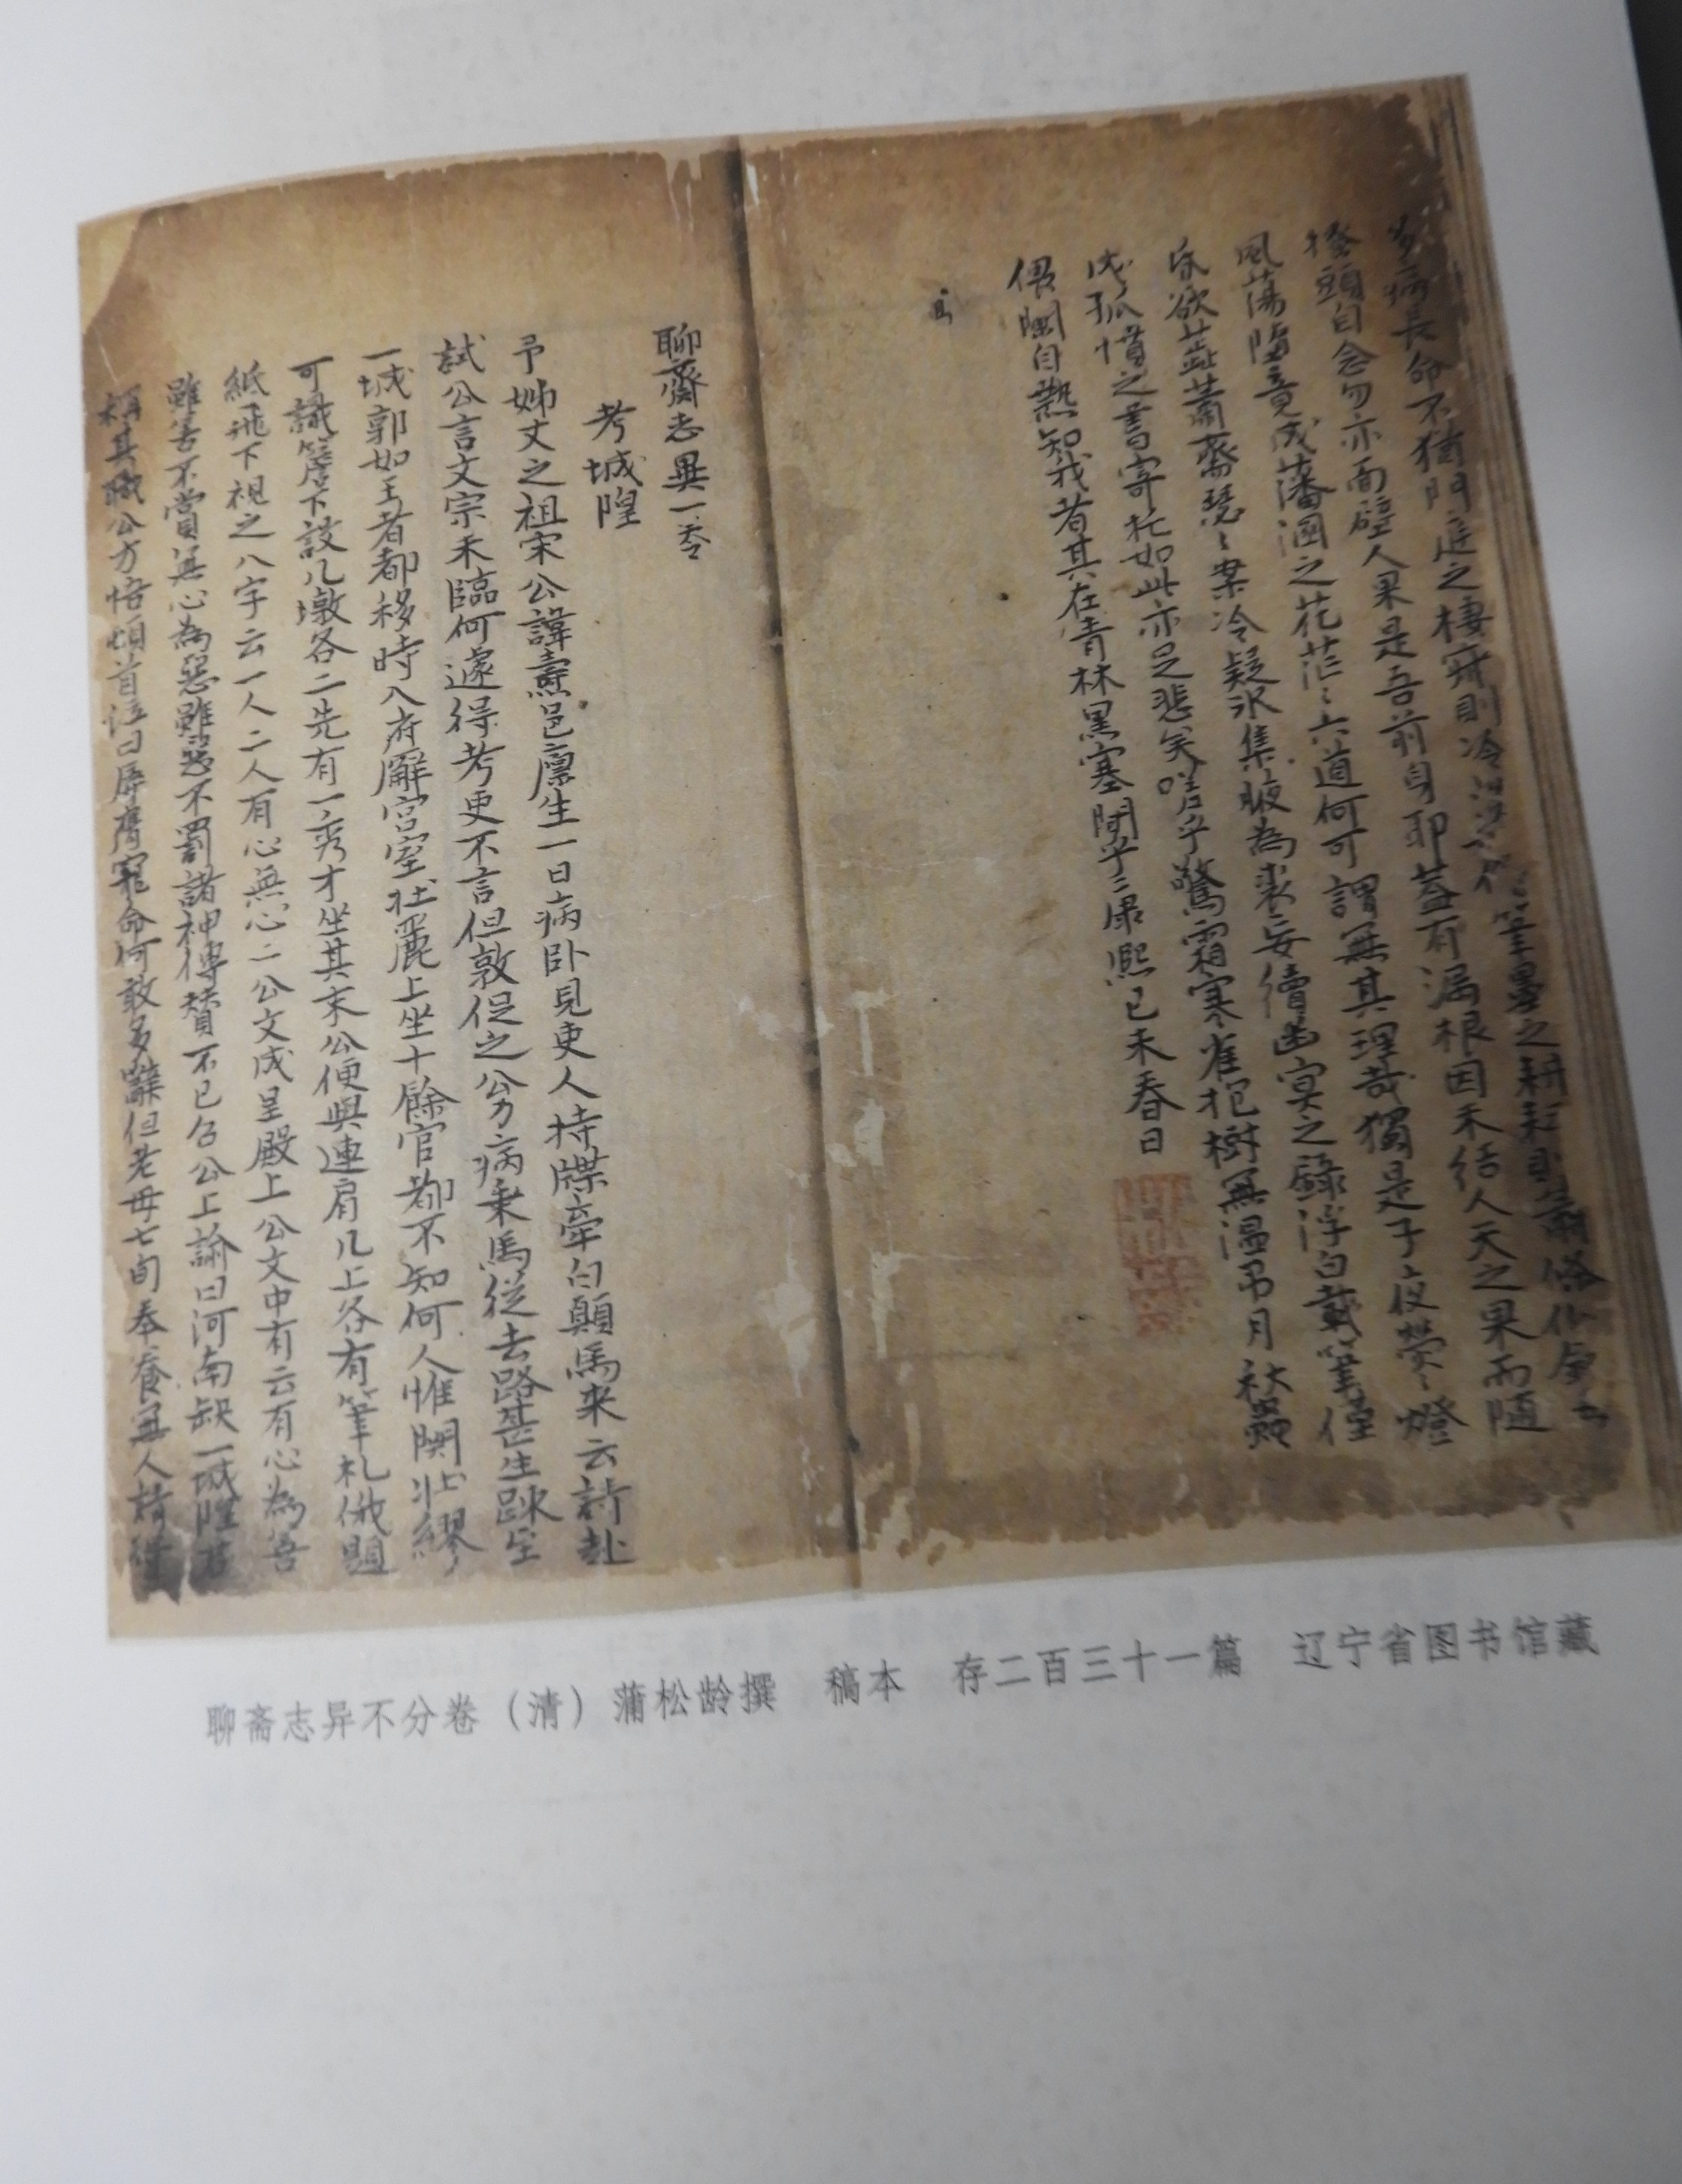 多病長命不猶門庭之棲寂則冷淡如僧筆墨之耕耘則蕭條似鉢每
搔頭自念勿亦面壁人果是吾前身耶蓋有漏根因未結人天之果而隨
風蕩墮竟成藩溷之花茫〻六道何可謂無其理哉獨是子夜熒〻燈
昏欲蕊蕭齋瑟〻案冷疑冰集腋為裘妄續幽冥之錄浮白載筆僅
成孤憤之書寄托如此亦足悲矣嗟乎驚霜寒雀抱樹無溫吊月秋蟲
偎闌自熱知我者其在青林黑塞間乎康熙己未春日
聊齋志異一卷
考城隍
予姊丈之祖宋公諱燾邑廩生一日病卧見吏人持牒牽白顛馬來云請赴
試公言文宗未臨何遽得考吏不言但敦促之公力病乘馬從去路甚生踈至
一城郭如王者都移時入府廨宮室壯麗上坐十餘官都不知何人惟関壮繆
可識簷下設几墩各二先有一秀才坐其末公便與連肩几上各有筆札俄題
紙飛下視之八字云一人二人有心無心二公文成呈殿上公文中有云有心為善
雖善不賞無心為惡雖惡不罰諸神傳贊不已召公上諭曰河南缺一城隍君
稱其職公方悟頓首泣曰辱膺寵命何敢多辭但老母七旬奉養無人請得
聊斋志异不分卷（清）蒲松龄撰 稿本 存二百三十一篇 辽宁省图书馆藏